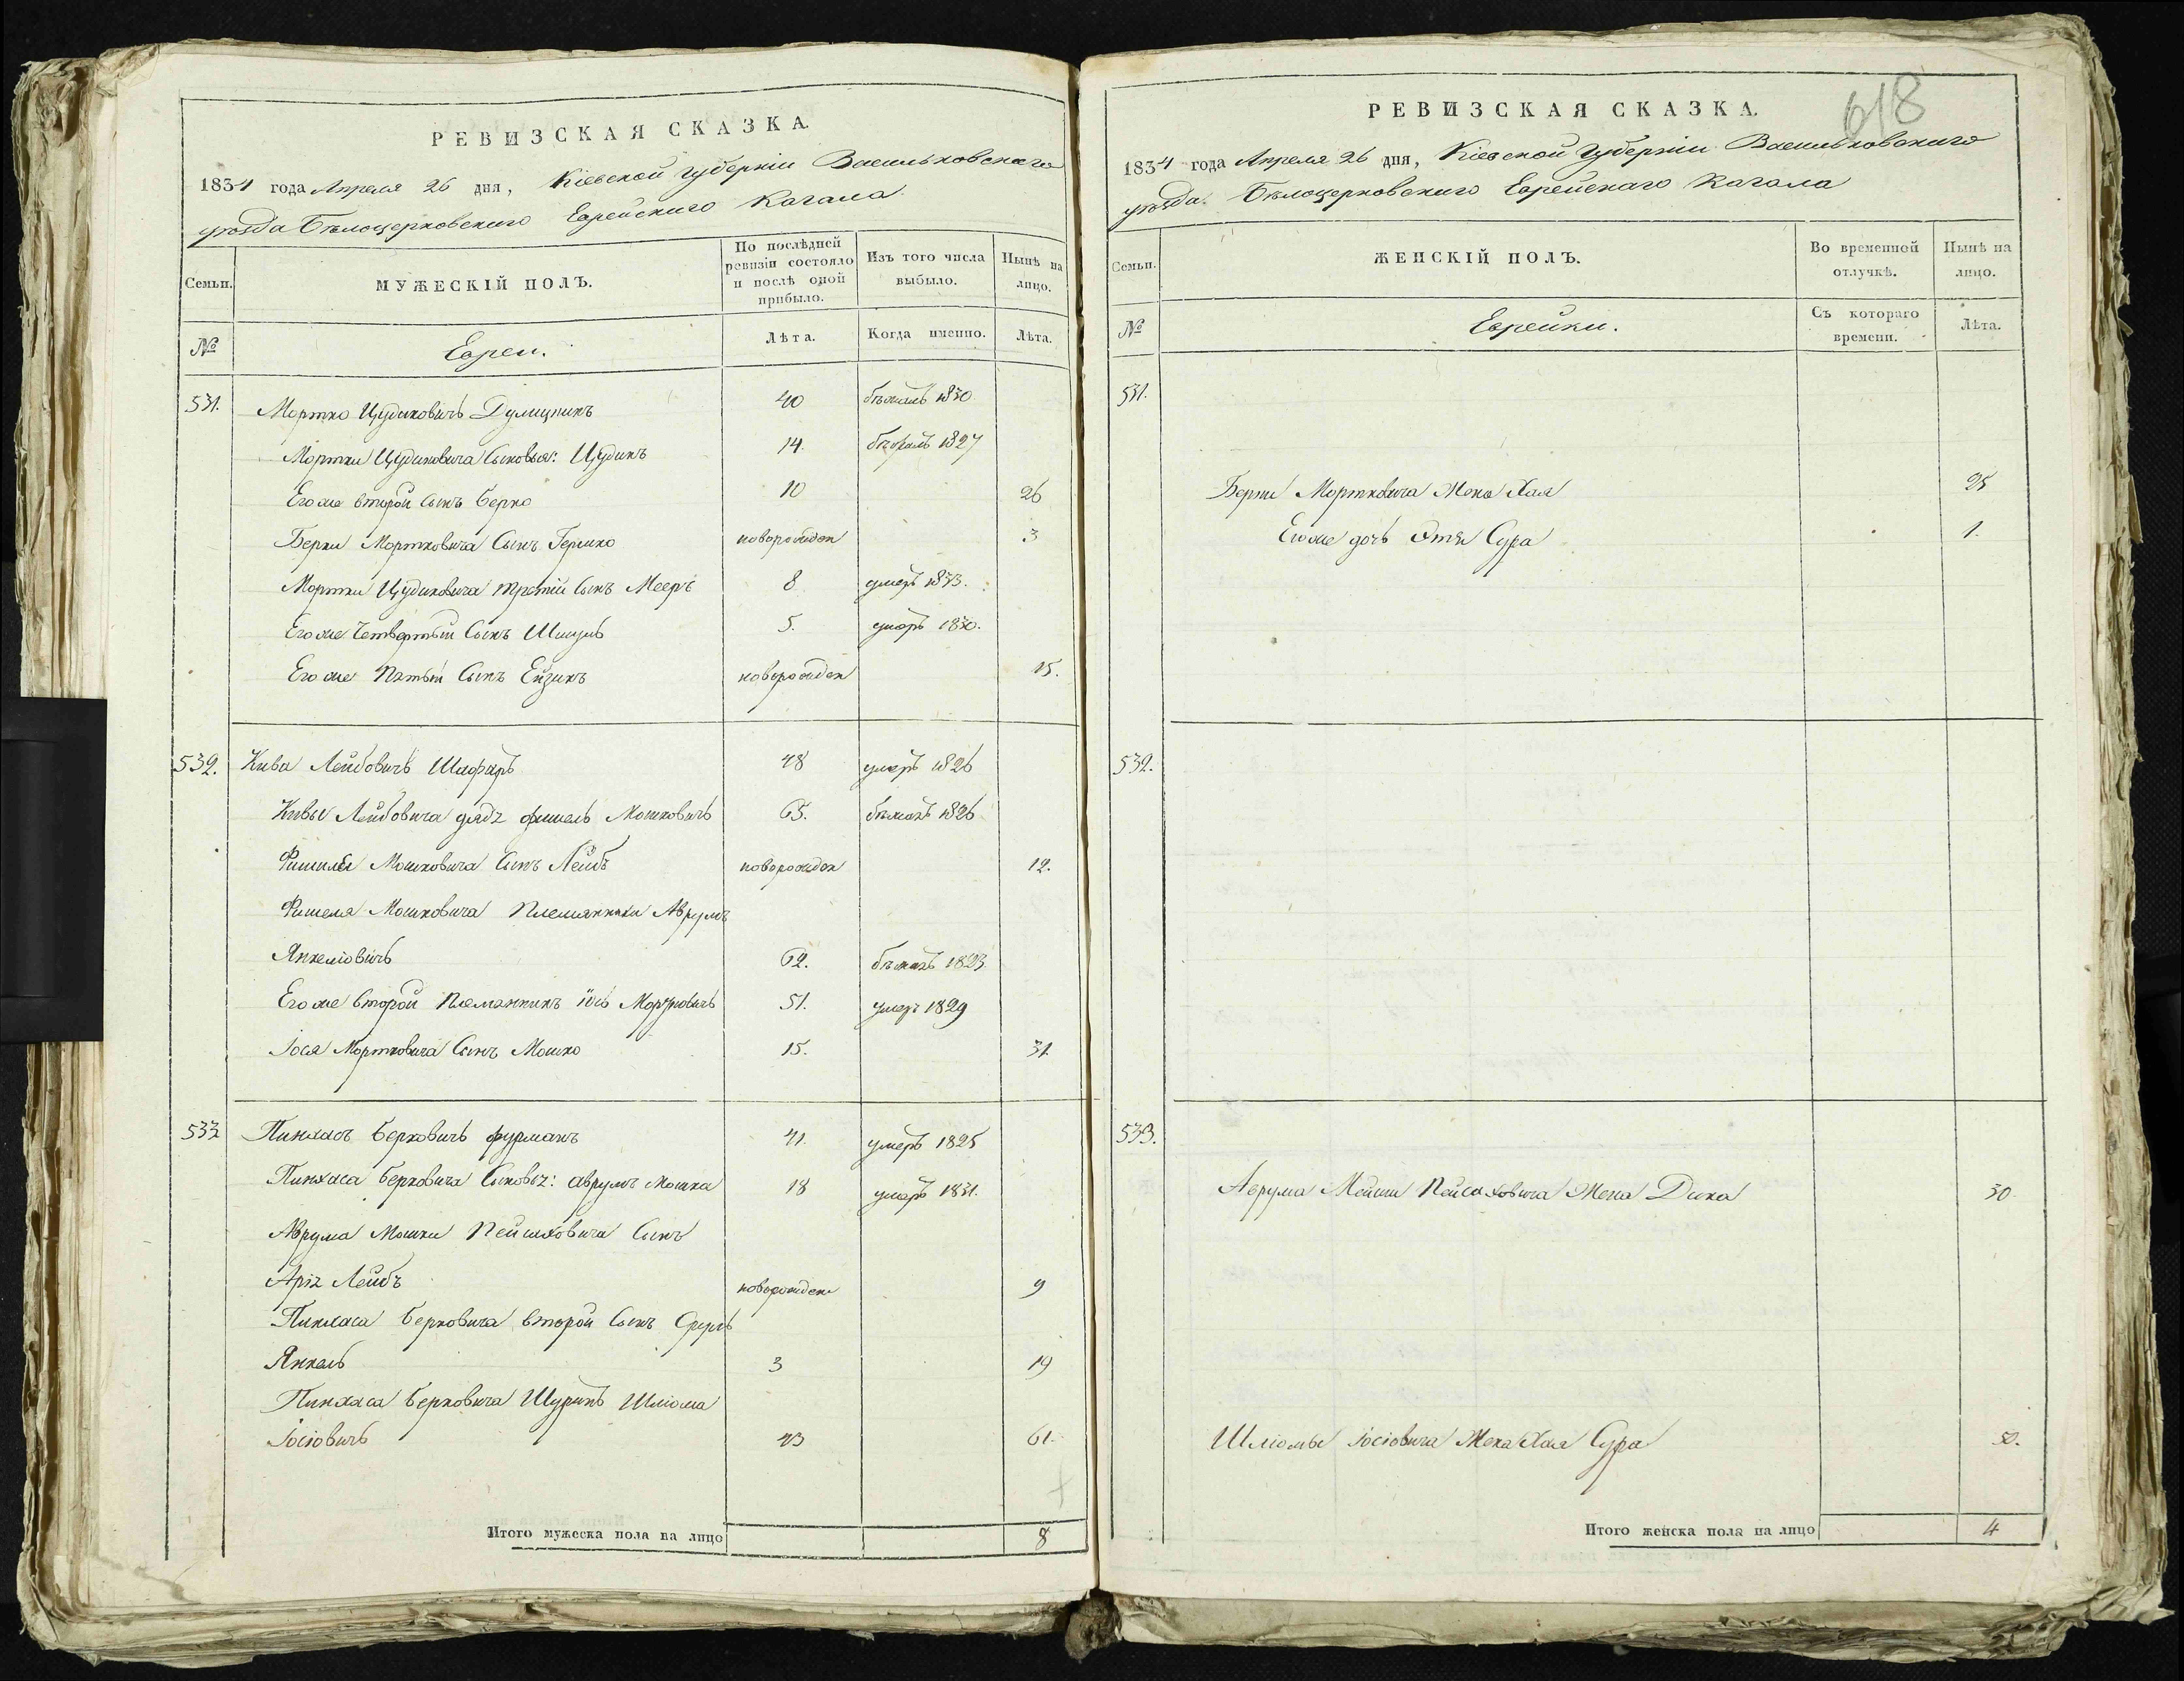 РЕВИЗСКАЯ СКАЗКА.
1834 года Апреля 26 дня, Кіевской Губерніи Васильковскаго
уѣзда Бѣлоцерковскаго Еврейскаго Кагала.
Семьи.
МУЖЕСКІЙ ПОЛЪ.
По послѣдней
ревизіи состояло
и послѣ оной
прибыло.
Изъ того числа
выбыло.
Нынѣ на
лицо.
№
Евреи.
Лѣта.
Когда именно.
Лѣта.
531. Мортко Цудиковичъ 40 бѣжалъ 1830
Мортки Цудиковича Сыновья: Цудикъ 14. бѣжалъ 1827
Его же второй Сынъ Берко 10 26
Берки Мортковича Сынъ Гершко новорожден 3
Мортки Цудиковича третій Сынъ Мееръ 8 умеръ 1833.
Его же Четвертый Сынъ 5. умеръ 1830.
Его же Пятый Сынъ Ейзикъ новорожден 15.
532. Кива Лейбовичъ Шафаръ 48 умеръ 1826
Кивы Лейбовича дядя фишель Мошковичъ 65. бѣжалъ 1826
Фишеля Мошковича Сынъ Лейбъ новорожден 12.
Фишеля Мошковича Племянники Аврумъ
Янкеліовичъ 62. бѣжалъ 1823
Его же второй Племянникъ іось Мортковичъ 51. умеръ 1829
Іося Мортковича Сынъ Мошко 15. 31.
533 Пинхасъ Берковичъ фурманъ 41 умеръ 1825
Пинхаса Берковича Сыновья: аврумъ Мошка 18 умеръ 1831.
Аврума Мошки Пейсаховича Сынъ
Арія Лейбъ новорожден 9
Пинхаса Берковича второй Сынъ Сруль
Янкель 3 19
Пинхаса Берковича Шуринъ Шліома
Іосіовичъ 43 61.
Итого мужеска пола на лицо 8
618
РЕВИЗСКАЯ СКАЗКА.
1834 года Апреля 26 дня, Кіевской Губерніи Васильковскаго
уѣзда Бѣлоцерковскаго Еврейскаго Кагала
Семьи.
ЖЕНСКІЙ ПОЛЪ.
Во временной
отлучкѣ.
Нынѣ на
лицо.
№
Еврейки.
Съ котораго
времени.
Лѣта.
531.
Берки Мортковича Жена Хая 25
Его же дочь Сура 1.
532.
533.
Аврума Мошки Пейсаховича Жена Двка 30
Шліомы Іосіовича Жена Хая Сура 50.
Итого женска пола на лицо 4